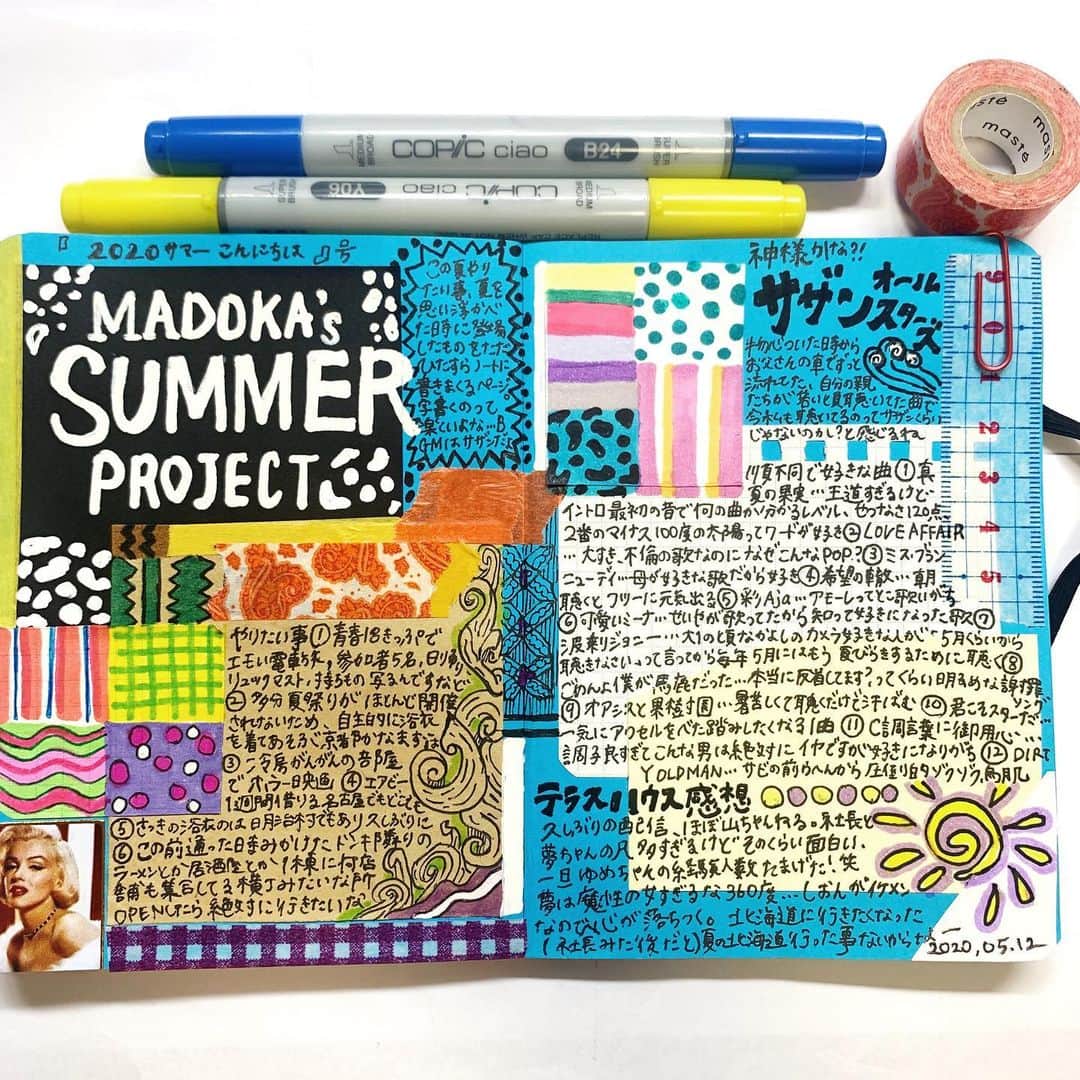 COPIC ciao B24
SUPER BRUSH
MEDIUM BROAD
COPIC ciao Y06
MEDIUM BROAD
maste
maste
『2020サマー こんにちは』号
MADOKA's
SUMMER
PROJECT
この夏やり
たい事、夏を
思い浮かべ
た時に登場
したものをただ
ひたすらノートに
書きまくるページ
字書くのって
楽しいよな…B
GMはサザンだよ
やりたい事①青春18きっぷで
エモい電車旅,参加者5名,日り帰り
リュックマスト,持ちもの 写るんですなど
②多分夏祭りがほとんど開催
されないため 自主的に浴衣
を着てあそぶ,京都かなまずは
③冷房がんがんの部屋
でホラー映画④エアビー
1週間借りる名古屋でもどこでも
⑤さっきの浴衣のは明治村でもあり久しぶりに
⑥この前通った時みかけたドンキ隣りの
ラーメンとか居酒屋とか1棟に何店
舗も集合してる横丁みたいな所
OPENしたら絶対に行きたいな
神様かな?!
サザンオールスターズ
物心ついた時から
お父さんの車でずっと
流れてた、自分の親
たちが若い頃聴いてた曲で
今私も聴いてるのってサザンくらい
じゃないのかし?と感じるね
順不同で好きな曲①真
夏の果実…王道すぎるけど
イントロ最初の音で何の曲か分かるレベル、せつなさ120点
2番のマイナス100度の太陽ってワードが好き②LOVE AFFAIR
…大すき、不倫の歌なのになぜこんなPOP?③ミス・ブラン
ニュー・デイ…母が好きな歌だから好き④希望の轍…朝
聴くとフリーに元気出る⑤彩Aja…アモーレってこと歌いがち
⑥可愛いミーナ…せいやが歌ってたから知って好きになった歌⑦
波乗りジョニー…大1の頃なかよしのカメラ好きなんが、5月くらいから
聴きなさいよって言ってから毎年5月にはもう夏びらきするために聴く⑧
ごめんよ僕が馬鹿だった…本当に反省してます?ってくらい明るめな謝罪ソング
⑨オアシスと果樹園…暑苦しくて聴くだけど汗ばむ⑩君こそスターだ…
一気にアクセルをべた踏みしたくなる1曲⑪C調言葉に御用心…
調子良すぎてこんな男は絶対にイヤですが好きになりがち⑫DIRT
Y OLD MAN…サビの前らへんから圧倒的ゾクゾク鳥肌
テラスハウス感想
久しぶりの配信、ほぼ山ちゃんねる。社長と
夢ちゃんの凡多すぎるけどそのくらい面白い、
一旦ゆめちゃんの経験人数たまげた!笑
夢は魔性の女すぎるな360度…しおんがイケメン
なので心が落ちつく。北海道に行きたくなった
(社長みた後だと)夏の北海道行った事ないからな
2020,05.12
0
1
2
3
4
5